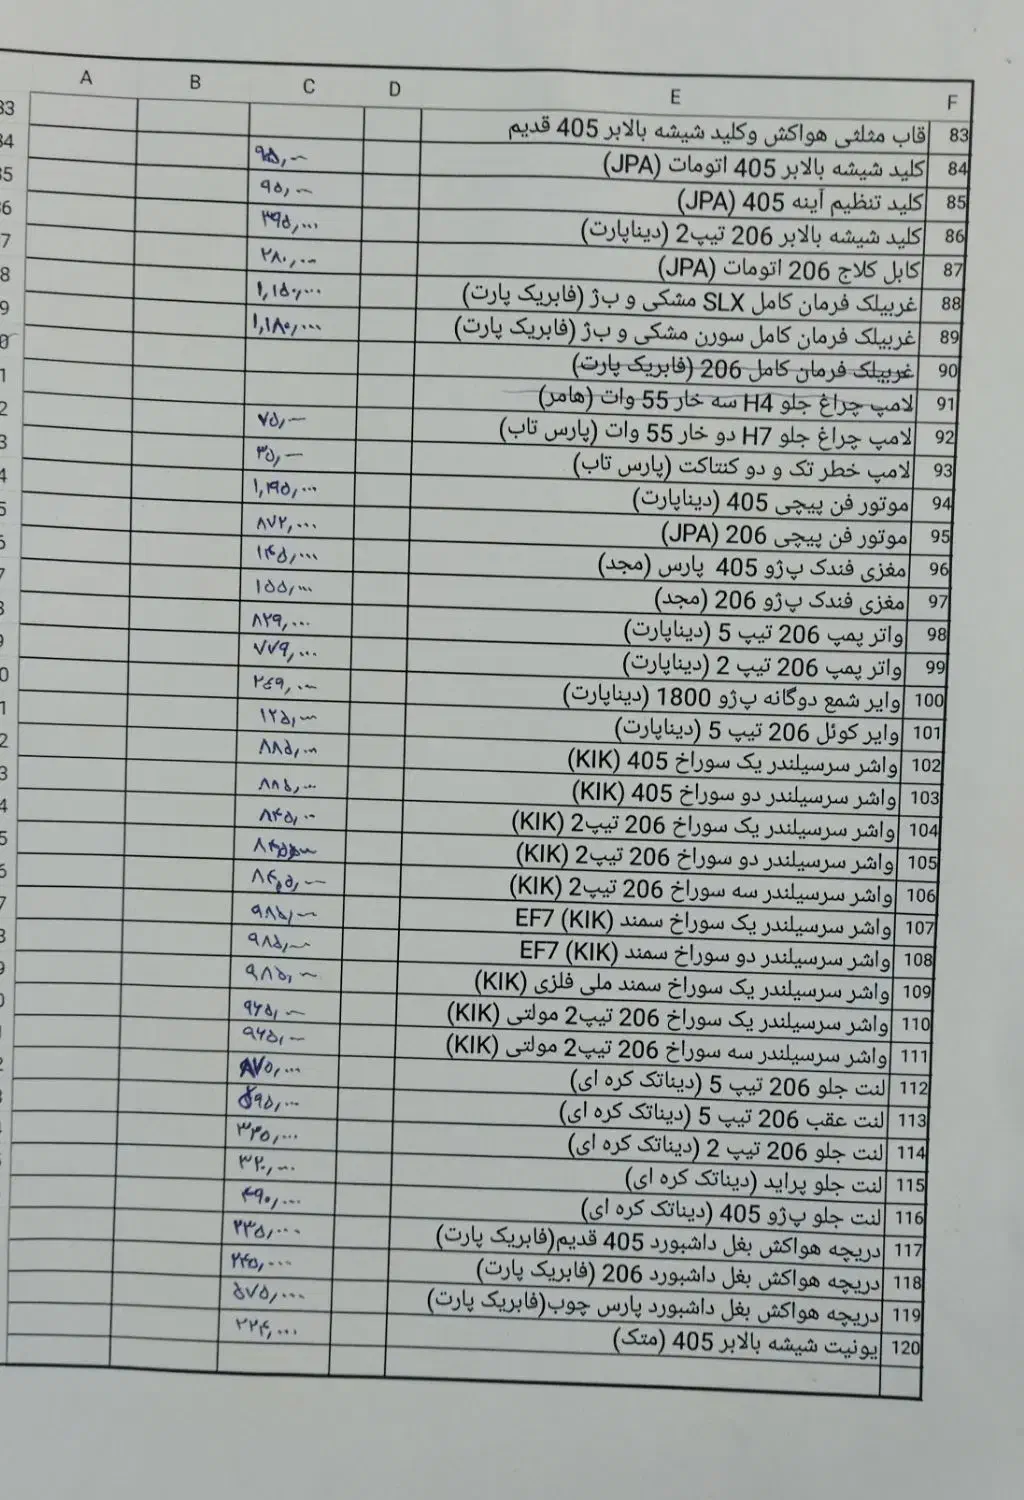 A B C D E F
83 قاب مثلثی هواکش وکلید شیشه بالابر 405 قدیم
84 کلید شیشه بالابر 405 اتومات (JPA) ۹۵,۰۰۰
85 کلید تنظیم آینه 405 (JPA) ۹۰,۰۰۰
86 کلید شیشه بالابر 206 تیپ2 (دیناپارت) ۳۹۵,۰۰۰
87 کابل کلاج 206 اتومات (JPA) ۲۸۰,۰۰۰
88 غربیلک فرمان کامل SLX مشکی و بژ (فابریک پارت) ۱,۱۵۰,۰۰۰
89 غربیلک فرمان کامل سورن مشکی و بژ (فابریک پارت) ۱,۱۸۰,۰۰۰
90 غربیلک فرمان کامل 206 (فابریک پارت)
91 لامپ چراغ جلو H4 سه خار 55 وات (هامر)
92 لامپ چراغ جلو H7 دو خار 55 وات (پارس تاب) ۷۵,۰۰۰
93 لامپ خطر تک و دو کنتاکت (پارس تاب) ۳۵,۰۰۰
94 موتور فن پیچی 405 (دیناپارت) ۱,۱۹۵,۰۰۰
95 موتور فن پیچی 206 (JPA) ۸۷۲,۰۰۰
96 مغزی فندک پژو 405 پارس (مجد) ۱۴۵,۰۰۰
97 مغزی فندک پژو 206 (مجد) ۱۵۵,۰۰۰
98 واتر پمپ 206 تیپ 5 (دیناپارت) ۸۲۹,۰۰۰
99 واتر پمپ 206 تیپ 2 (دیناپارت) ۷۷۹,۰۰۰
100 وایر شمع دوگانه پژو 1800 (دیناپارت) ۲۴۹,۰۰۰
101 وایر کوئل 206 تیپ 5 (دیناپارت) ۱۲۵,۰۰۰
102 واشر سرسیلندر یک سوراخ 405 (KIK) ۸۸۵,۰۰۰
103 واشر سرسیلندر دو سوراخ 405 (KIK) ۸۸۵,۰۰۰
104 واشر سرسیلندر یک سوراخ 206 تیپ2 (KIK) ۸۴۵,۰۰۰
105 واشر سرسیلندر دو سوراخ 206 تیپ2 (KIK) ۸۴۵,۰۰۰
106 واشر سرسیلندر سه سوراخ 206 تیپ2 (KIK) ۸۴۵,۰۰۰
107 واشر سرسیلندر یک سوراخ سمند EF7 (KIK) ۹۸۵,۰۰۰
108 واشر سرسیلندر دو سوراخ سمند EF7 (KIK) ۹۸۵,۰۰۰
109 واشر سرسیلندر یک سوراخ سمند ملی فلزی (KIK) ۹۸۵,۰۰۰
110 واشر سرسیلندر یک سوراخ 206 تیپ2 مولتی (KIK) ۹۶۵,۰۰۰
111 واشر سرسیلندر سه سوراخ 206 تیپ2 مولتی (KIK) ۹۶۵,۰۰۰
112 لنت جلو 206 تیپ 5 (دیناتک کره ای) ۸۷۰,۰۰۰
113 لنت عقب 206 تیپ 5 (دیناتک کره ای) ۵۹۵,۰۰۰
114 لنت جلو 206 تیپ 2 (دیناتک کره ای) ۳۴۵,۰۰۰
115 لنت جلو پراید (دیناتک کره ای) ۳۲۰,۰۰۰
116 لنت جلو پژو 405 (دیناتک کره ای) ۴۹۰,۰۰۰
117 دریچه هواکش بغل داشبورد 405 قدیم(فابریک پارت) ۲۳۵,۰۰۰
118 دریچه هواکش بغل داشبورد 206 (فابریک پارت) ۲۴۵,۰۰۰
119 دریچه هواکش بغل داشبورد پارس چوب(فابریک پارت) ۵۷۵,۰۰۰
120 یونیت شیشه بالابر 405 (متک) ۲۲۴,۰۰۰